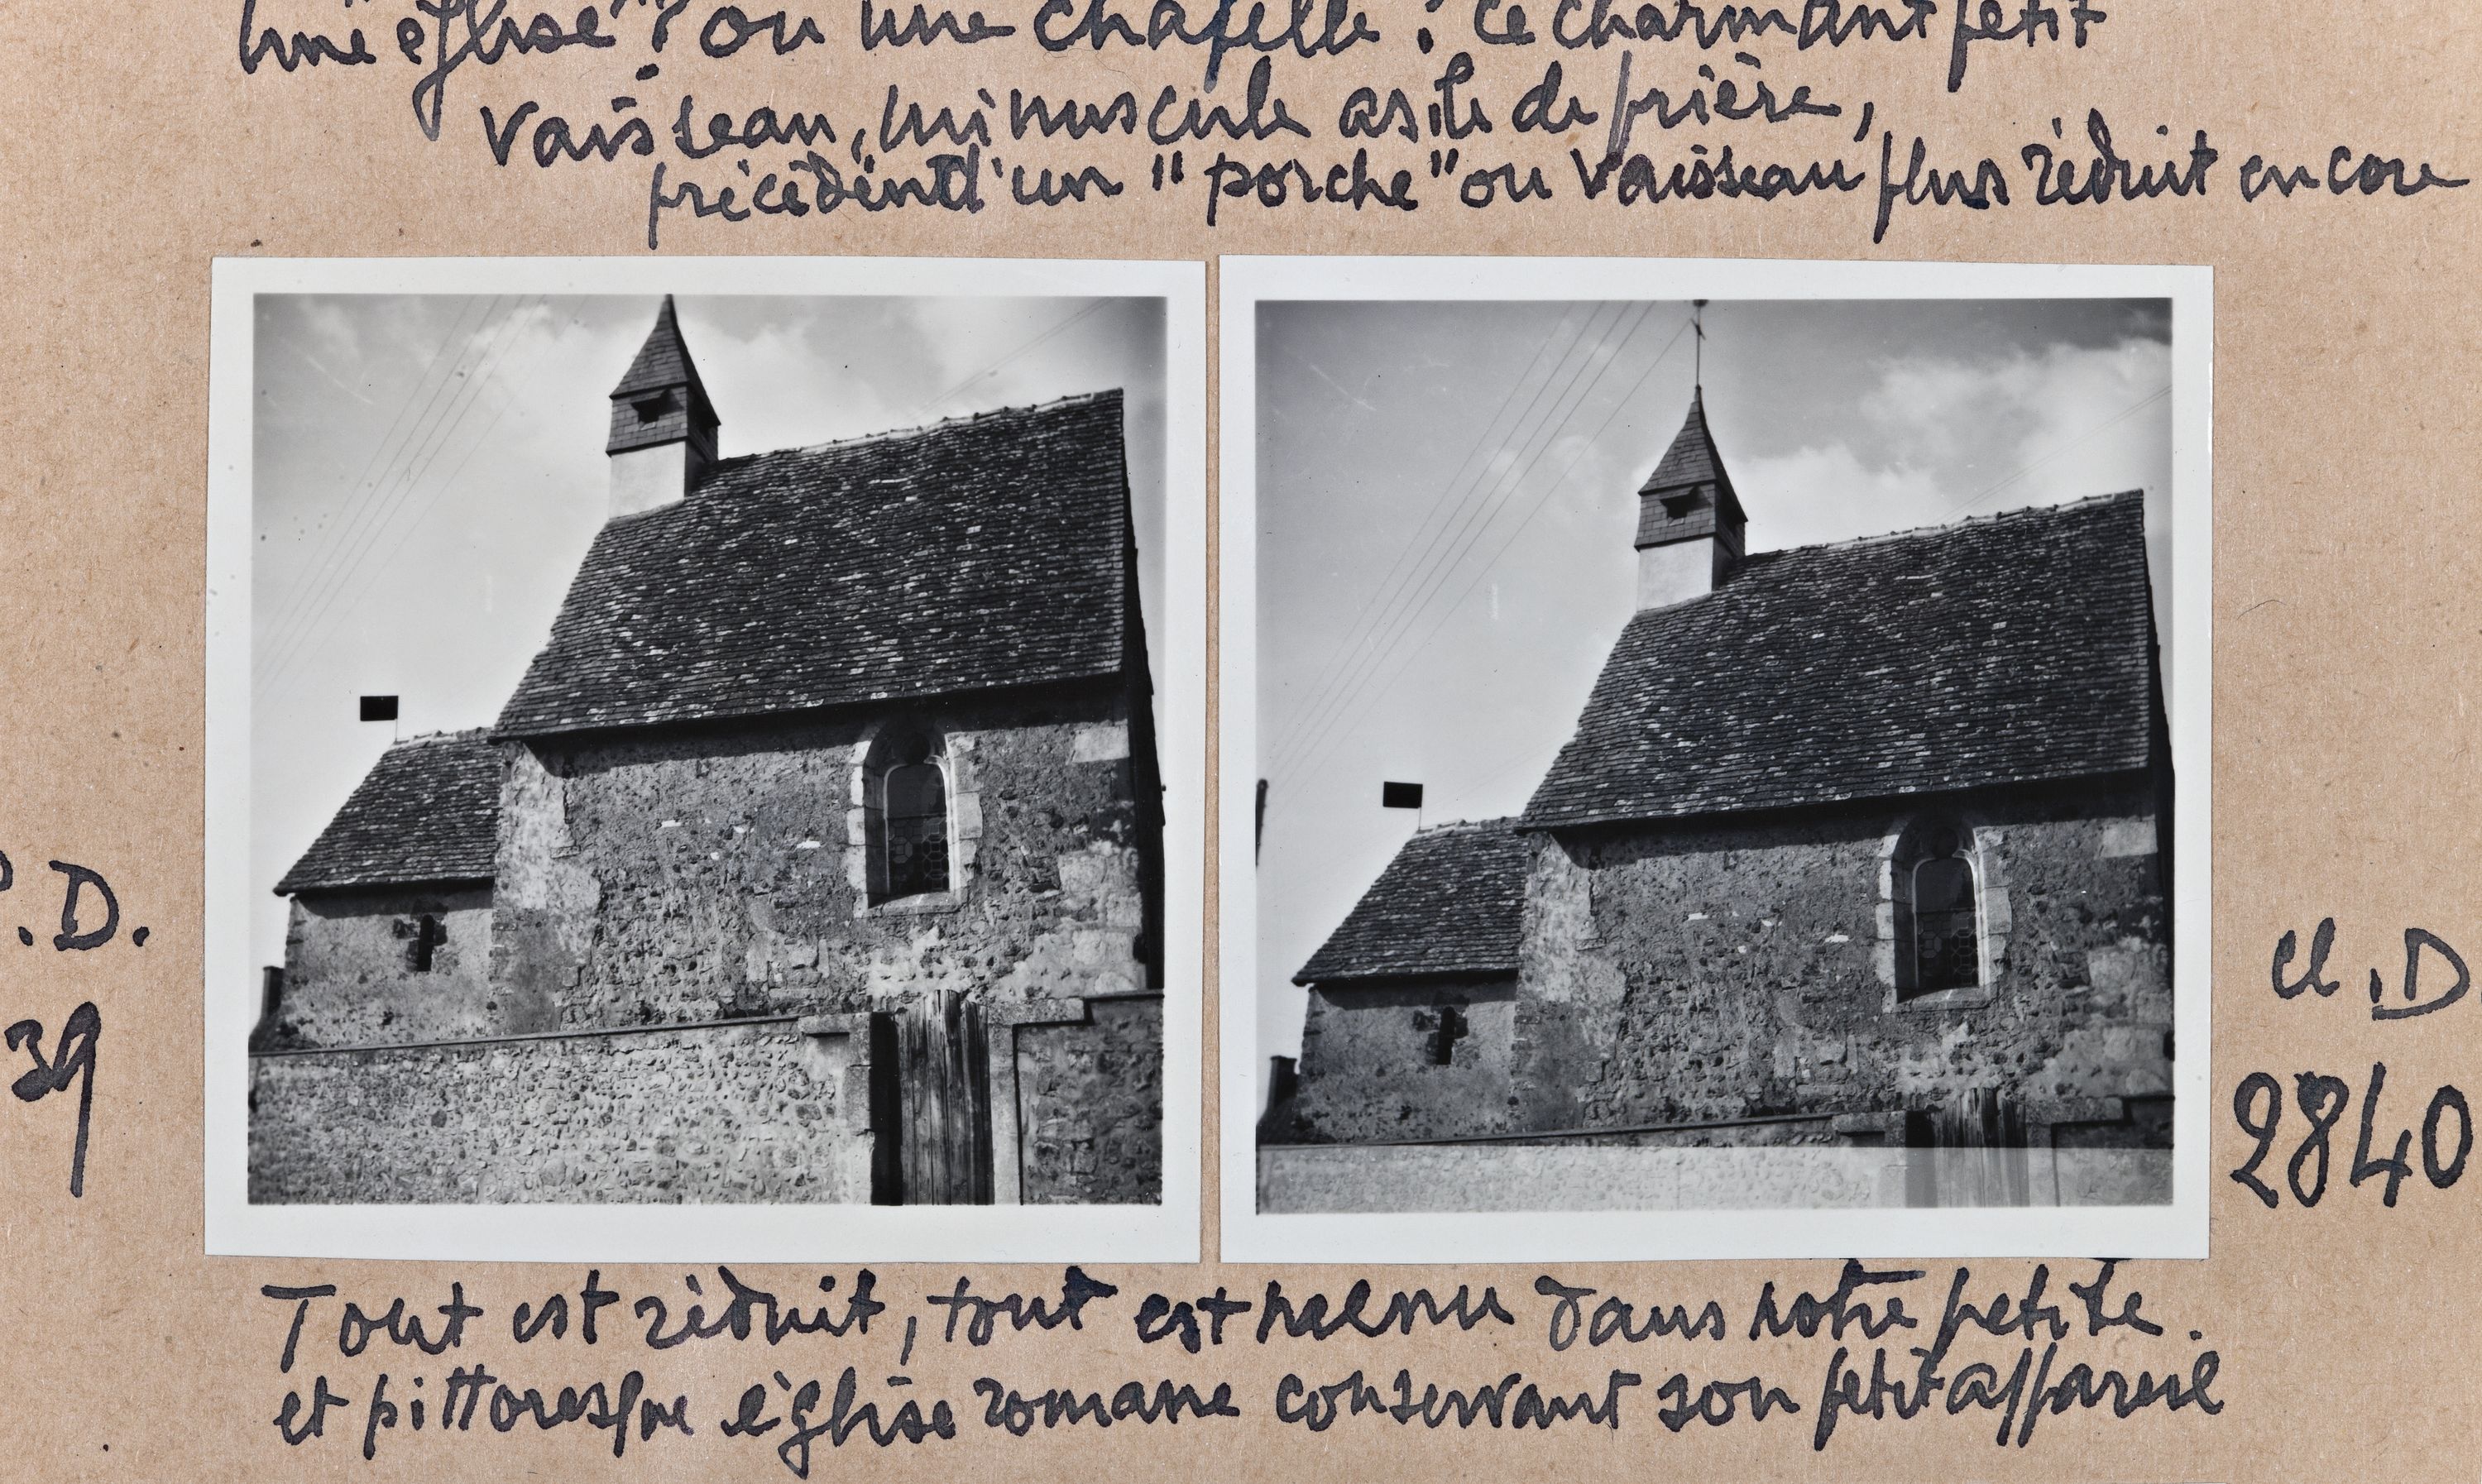 une église ? ou une chapelle ? ce charmant petit
vaisseau, minuscule asile de prière,
précédent d'un "porche" ou vaisseau plus réduit encore
.D.
39
cl.D
2840
Tout est réduit, tout est menu dans notre petite.
et pittoresque église romane conservant son petit appareil